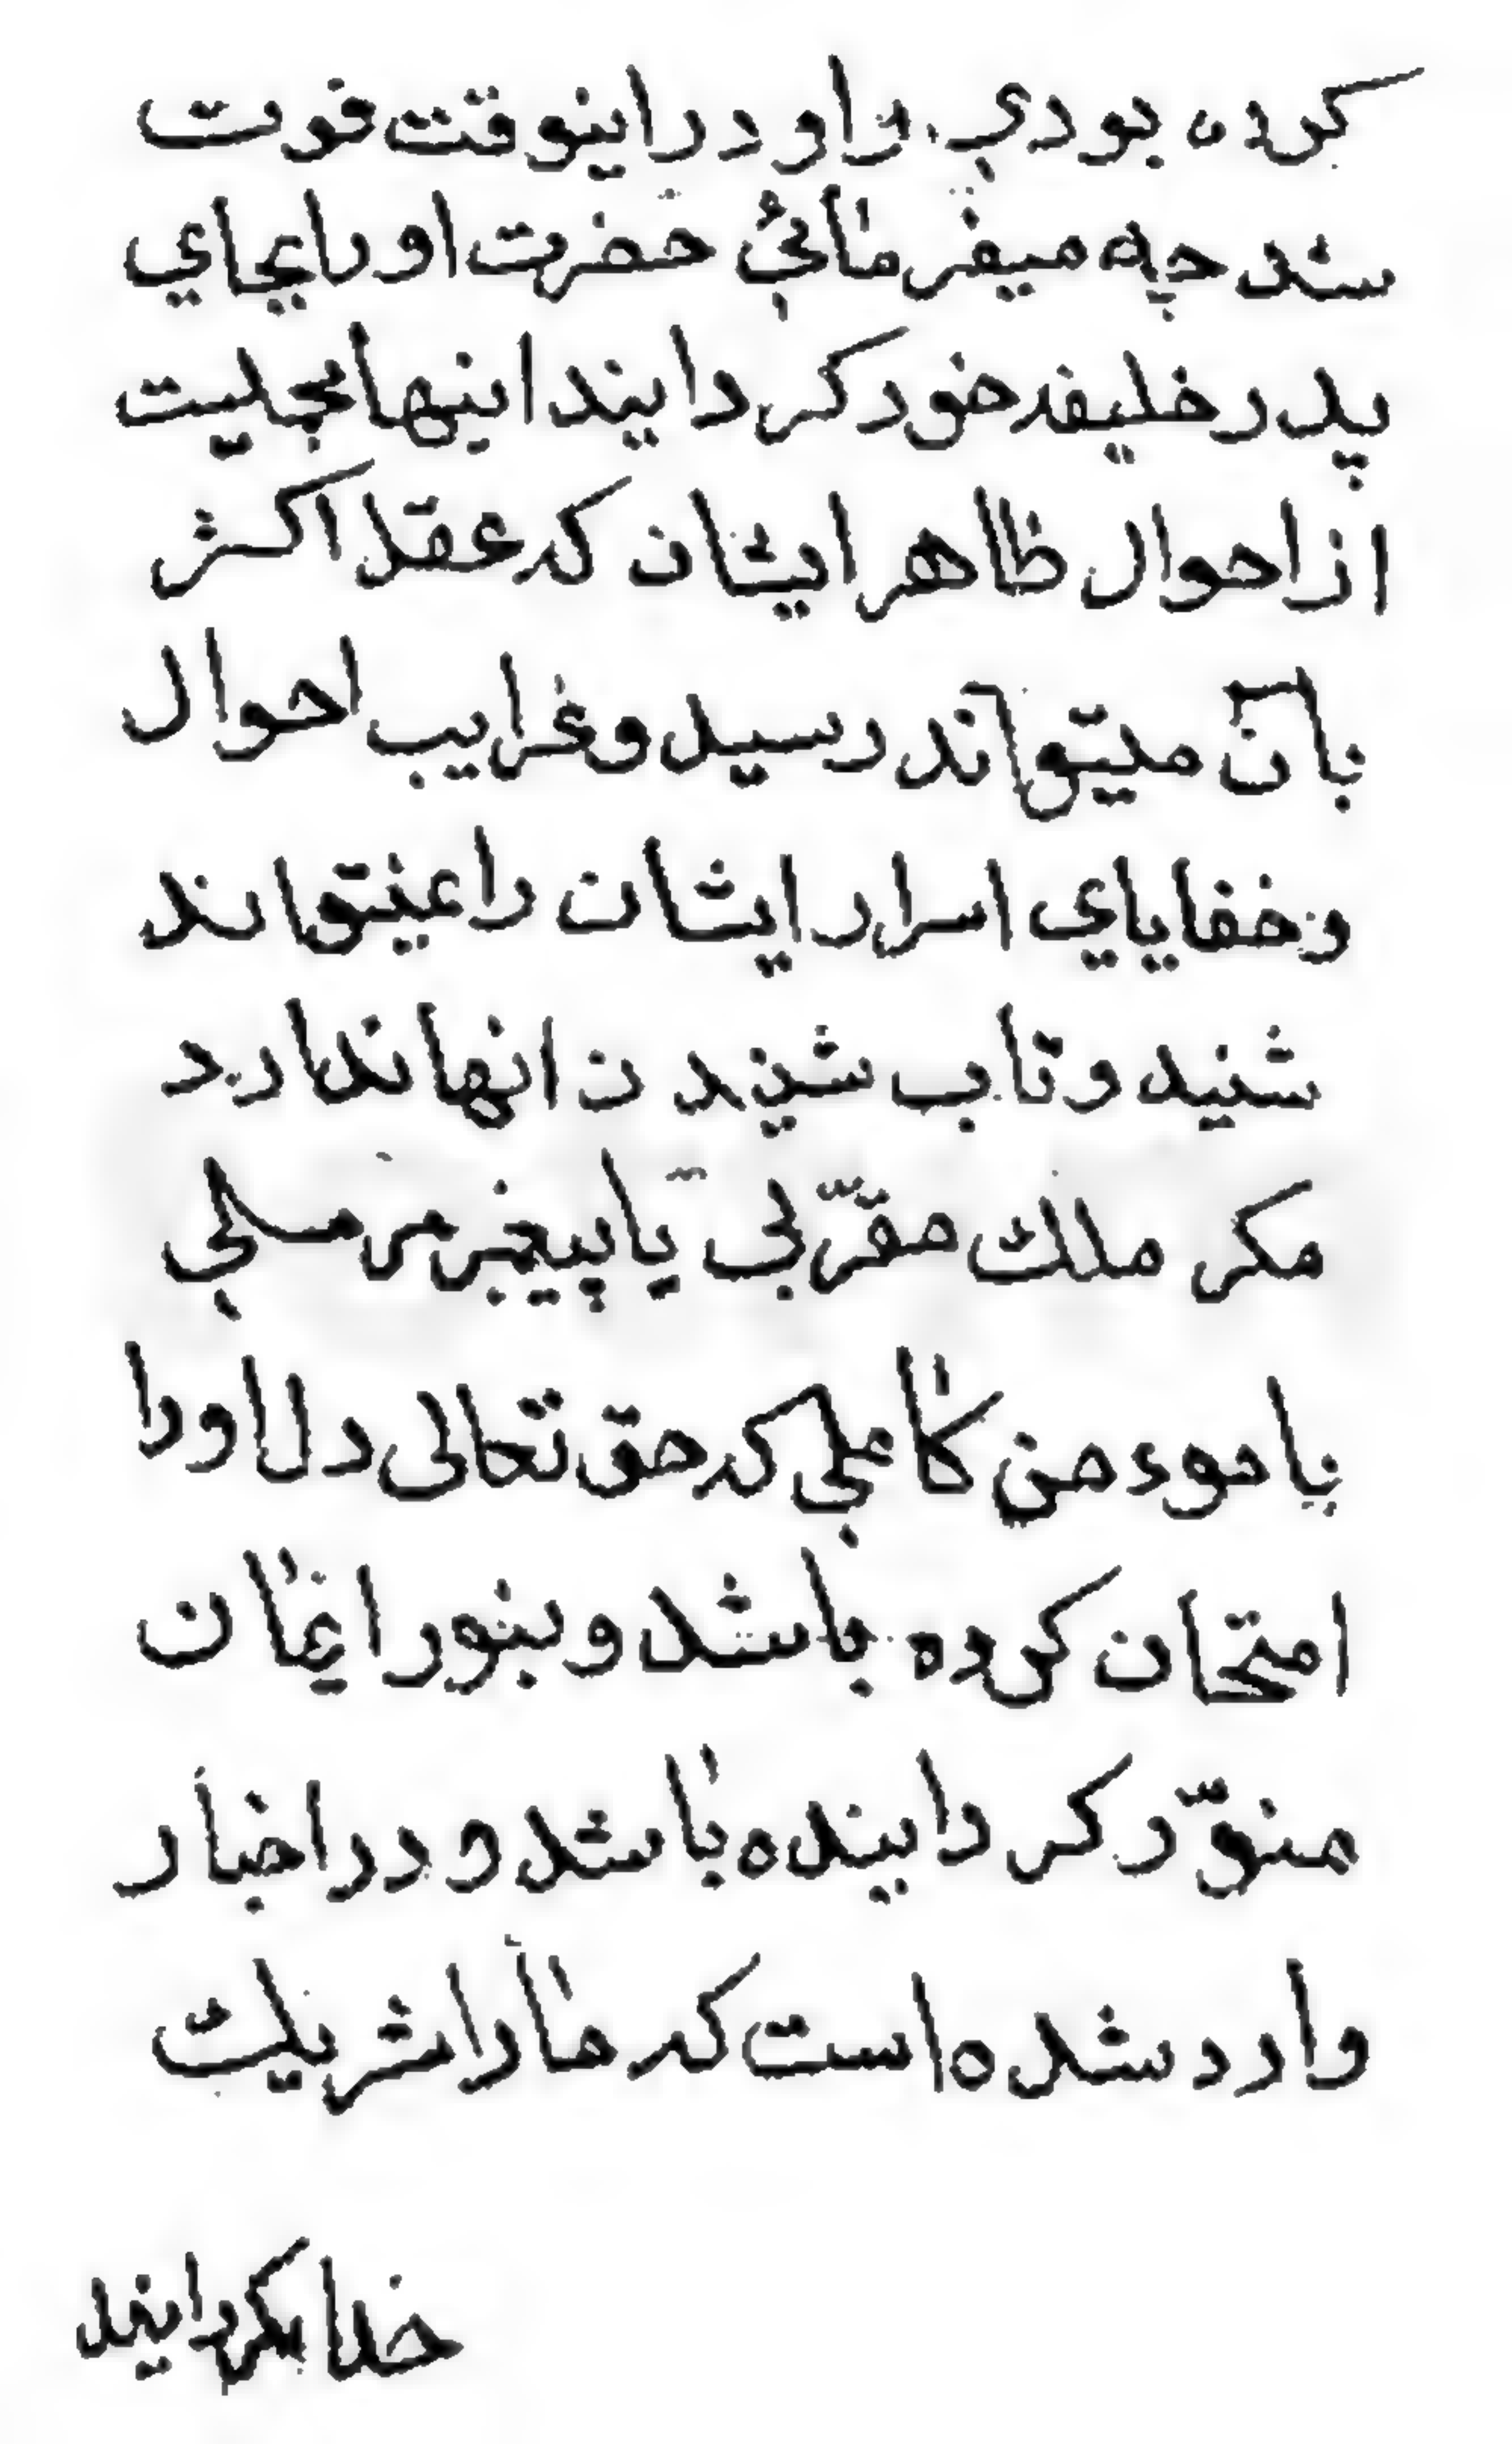 کرده بودي و او در اینوقت فوت
شد چه میفرمائي حضرت اورا بجاي
پدر خلیفه خود کردایند اینها مجلیت
از احوال ظاهر ایشان که عقل اکثر
بآن میتواند رسید و غرایب احوال
و خفایاي اسرار ایشان را نمیتواند
شنید و تاب شنیدن انها ندارد
مکر ملك مقرّبی یا پیغمبر مرسلي
یا موءمن کاملي که حق تعالی دل اورا
امتحان کرده باشد و بنور ایمان
منوّر کردایینده باشد و در اخبار
وارد شده است که ما را شریك
خدا مکردانید